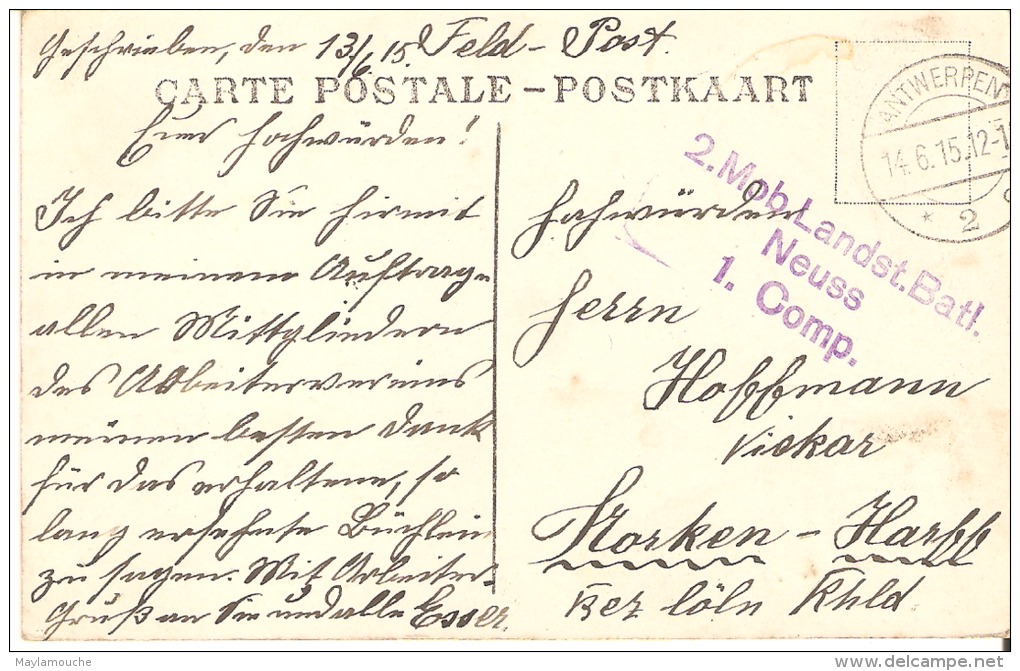 Geschrieben, den 13/6 15. Feld-Post.
CARTE POSTALE - POSTKAART
Euer Hochwürden!
Ich bitte Sie hirmit
in meinem Auftrage
allen Mittgliedern
des Arbeitervereins
meinen besten Dank
für das erhaltene, so
lang ersehnte Büchlein
zu sagen. Mit Arbeiter-
Gruß an Sie und alle Esser.
ANTWERPEN
14.6.15.12-1
* 2
2.Mob.Landst.Batl.
Neuss
1. Comp.
Hochwürden
Herrn
Hoffmann
Vickar
Morken - Harff
Bez Cöln Rhld
Maylamouche
delcampe.net